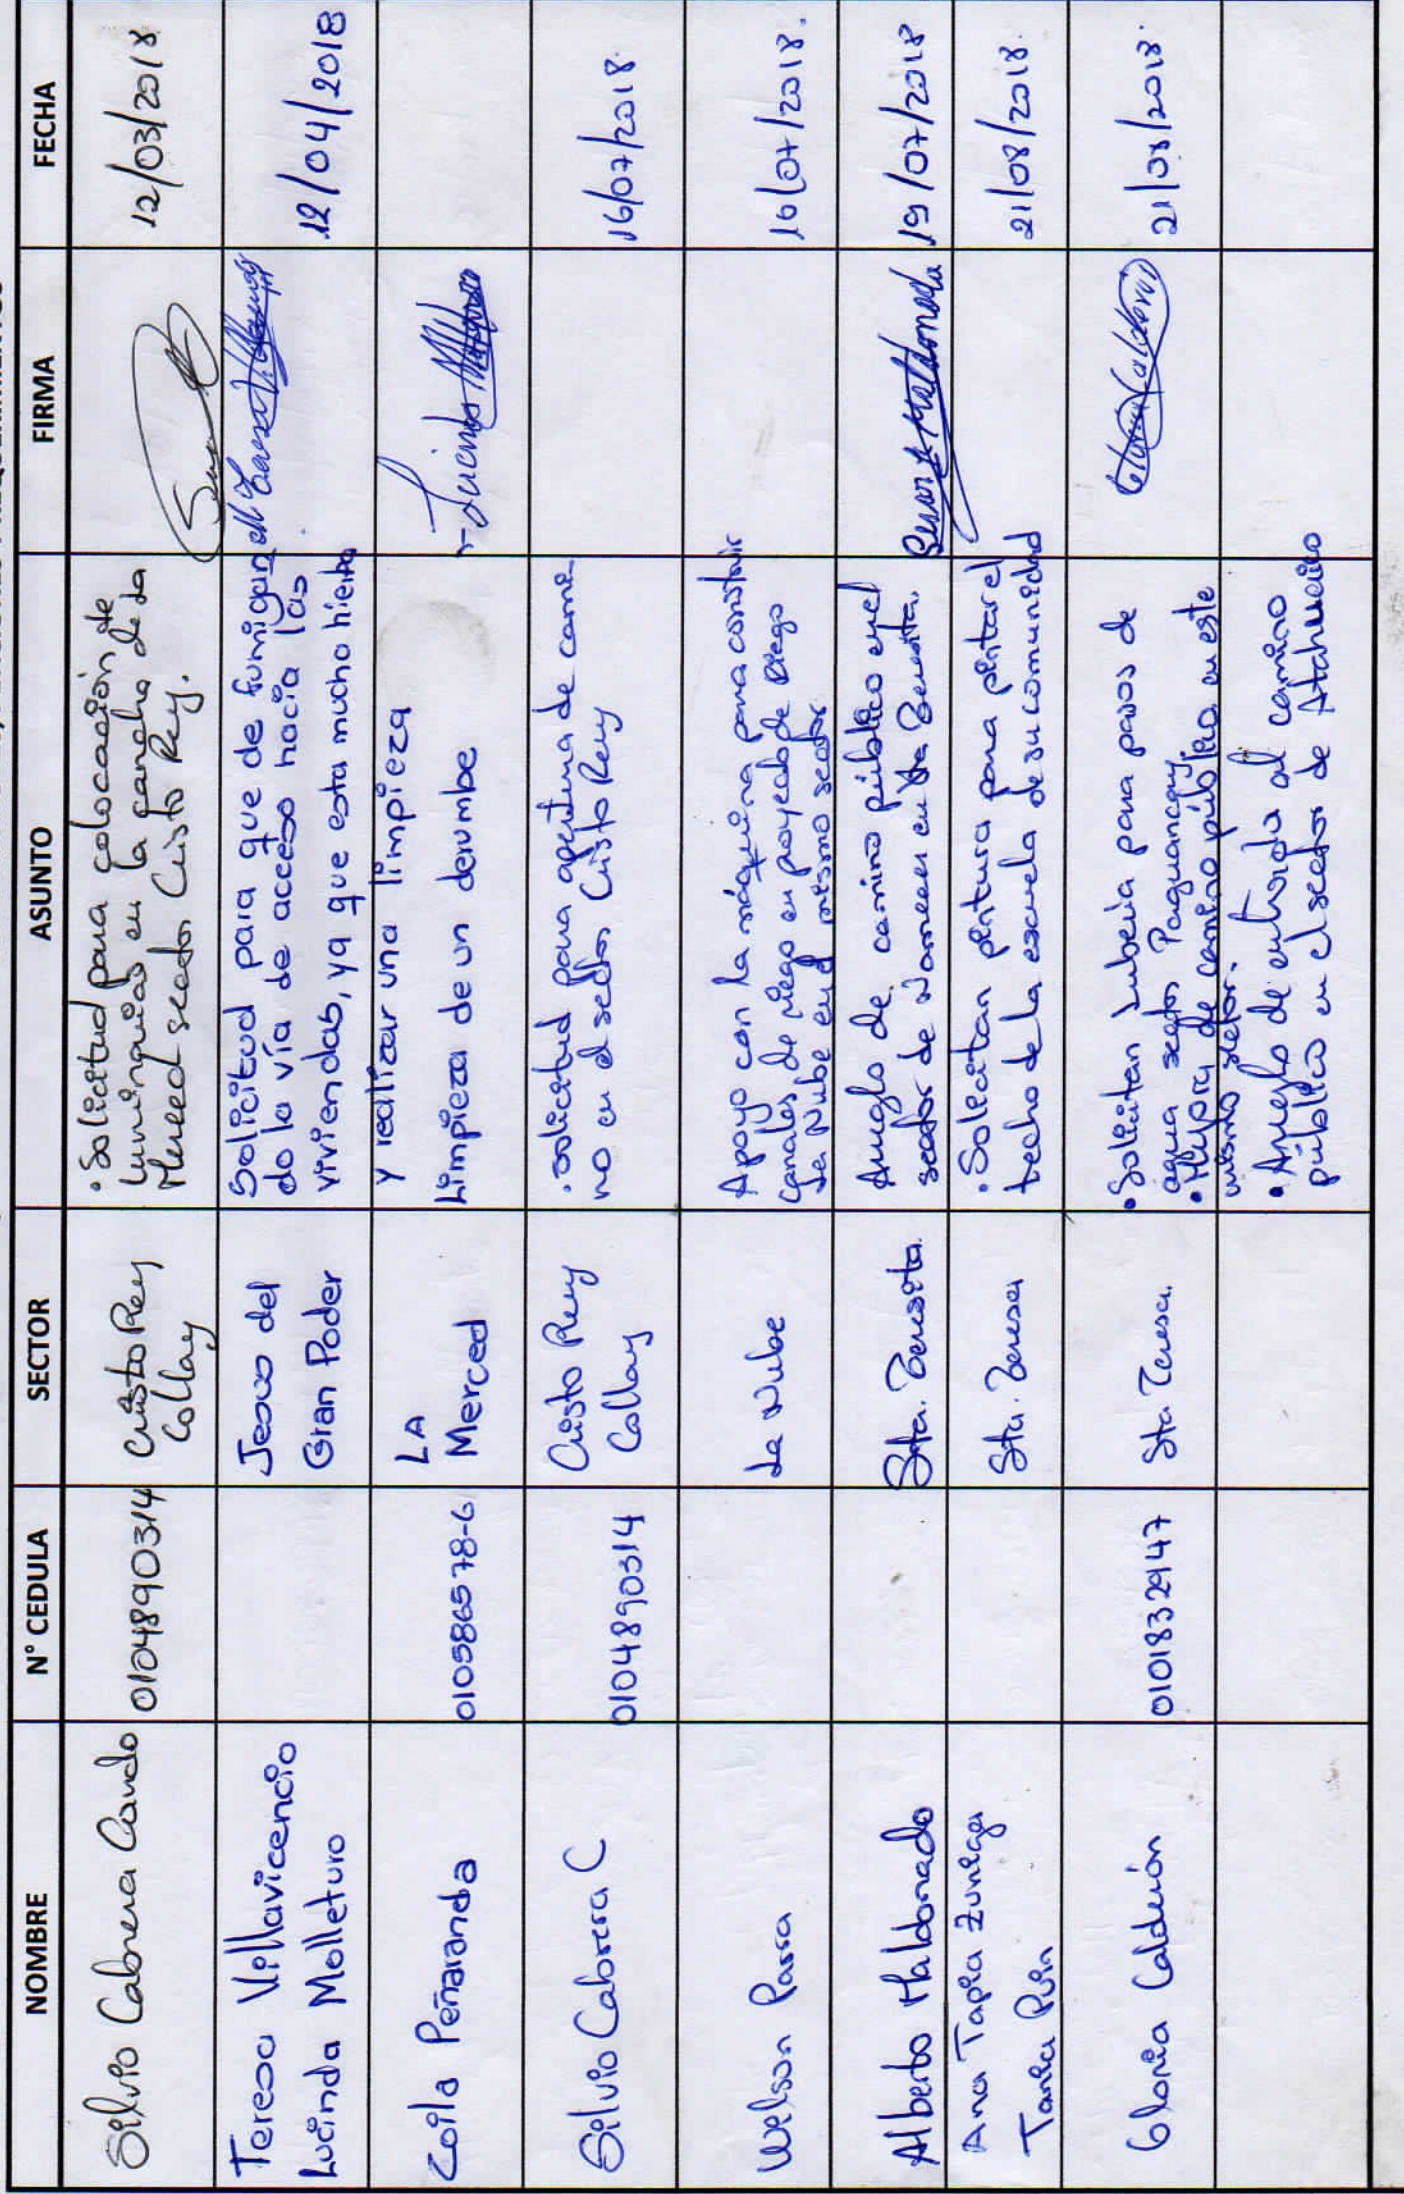 NOMBRE N° CEDULA SECTOR ASUNTO FIRMA FECHA
Silvio Cabrera Cando 0104890314 Cristo Rey
Collay
• Solicitud para colocación de
luminarias en la cancha de la
Merced sector Cristo Rey.
12/03/2018
Teresa Villavicencio
Lucinda Molleturo
Jesus del
Gran Poder
Solicitud para que de fumigan
do la vía de acceso hacia las
viviendas, ya que esta mucho hierba
y realizar una limpieza
12/04/2018
Zoila Peñaranda 010586578-6 LA
Merced
Limpieza de un derrumbe
Lucinda
Silvio Cabrera C 0104890314 Cristo Rey
Collay
• Solicitud para apertura de cami
no en el sector Cristo Rey
16/07/2018.
Welson Parra La Nube
Apoyo con la máquina para construir
canales de riego en proyecto de Riego
La Nube en el mismo sector
16/07/2018.
Alberto Maldonado Sta. Teresita.
Arreglo de camino público en el
sector de en Sta Teresita.
Maldonado 19/07/2018
Ana Tapia Zuniga
Tania Puin
Sta. Teresa
• Solicitan pintura para pintar el
techo de la escuela de su comunidad
21/08/2018.
Gloria Calderón 0101832947 Sta Teresa.
• Soliciten tuberia para pasos de
agua sector Paguancay
• Mejora de camino público en este
mismo sector.
Gloria Calderón 21/08/2018.
• Arreglo de entrada al camino
público en el sector de